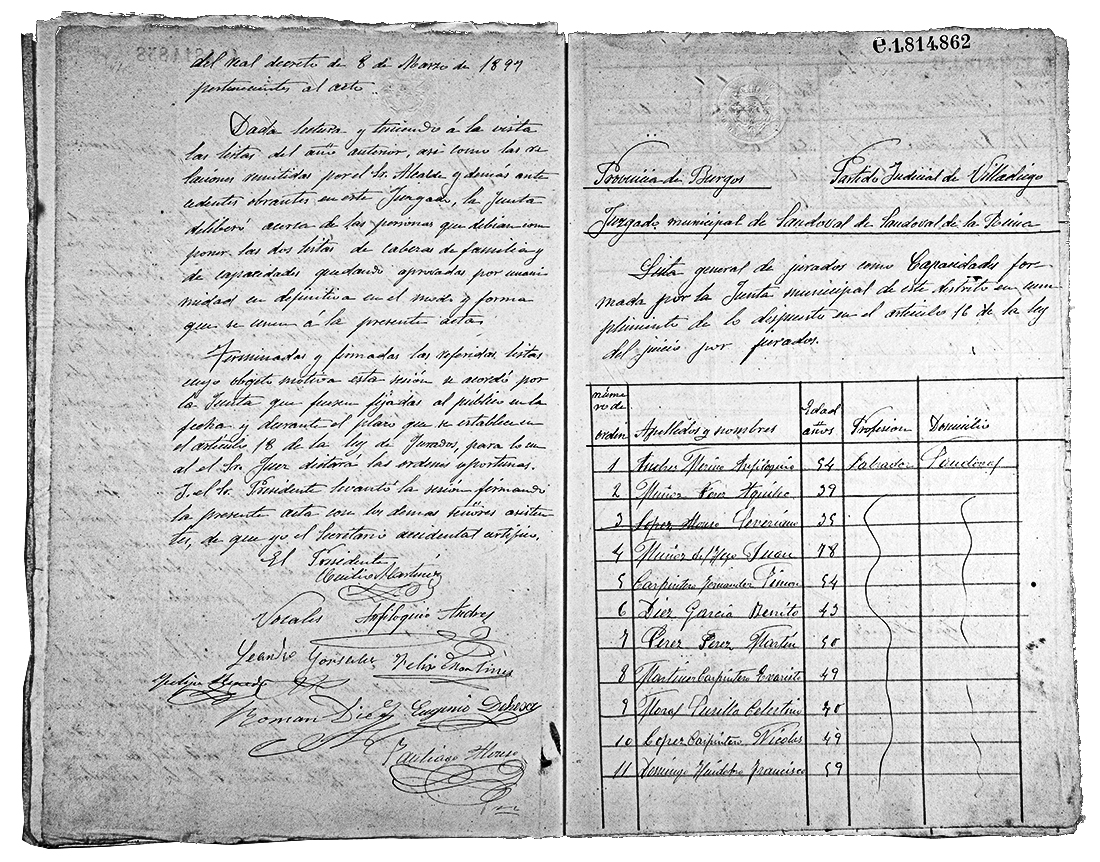 del real decreto de 8 de Marzo de 1897
pertenecientes al acto.
Dada lectura y teniendo á la vista
las listas del año anterior, asi como las re
laciones remitidas por el Sr. Alcalde y demas ante
cedentes obrantes en este Juzgado, la Junta
deliberó acerca de las personas que debian com
poner las dos listas de cabezas de familia y
de capacidades quedando aprovadas por unani
midad en definitiva en el modo y forma
que se unen á la presente acta.
Terminadas y firmadas las referidas listas
cuyo objeto motiva esta sesión se acordó por
la Junta que fuesen fijadas al publico en la
fecha y durante el plazo que se establece en
el articulo 18 de la ley de Jurados, para lo cu
al el Sr. Juez dictará las ordenes oportunas.
Y el Sr. Presidente levantó la sesión firmando
la presente acta con los demas señores asisten
tes, de que yo el Secretario accidental certifico.
El Presidente
Martinez
Vocales Anfiloquio Andres
Leandro Gonzalez Felix Martinez
Felipe
Roman Diez Eugenio
Santiago Alonso
e.1.814.862
Provincia de Burgos Partido Judicial de Villadiego
Juzgado municipal de Sandoval de Sandoval de la Reina
Lista general de jurados como Capacidades for-
mada por la Junta municipal de este distrito en cum
plimiento de lo dispuesto en el articulo 16 de la ley
del juicio por jurados.
núme
ro de
orden Apellidos y nombres Edad años Profesion Domicilio
1 Andres Merino Anfiloquio 54 Labrador Sandoval
2 Muñoz Perez 39
3 Lopez Alonso Severiano 35
4 Muñoz Juan 78
5 Carpintero Fernandez Simon 54
6 Diez Garcia Benito 43
7 Perez Perez Martin 50
8 Martinez Carpintero Evaristo 49
9 Celestino 70
10 Lopez Carpintero Nicolas 49
11 Domingo Francisco 59